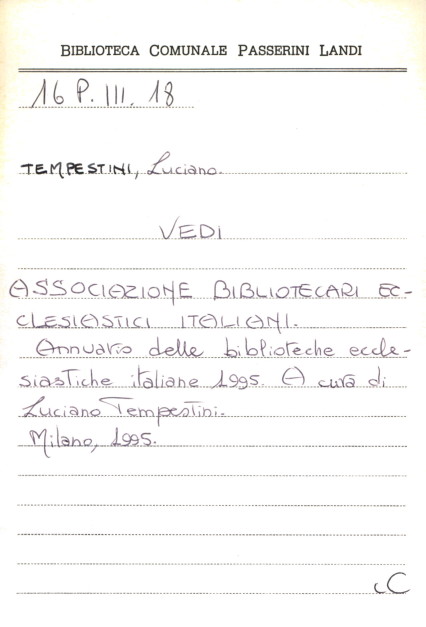 BIBLIOTECA COMUNALE PASSERINI LANDI
16 P. III. 18
TEMPESTINI, Luciano.
VEDI
ASSOCIAZIONE BIBLIOTECARI EC-
CLESIASTICI ITALIANI.
Annuario delle biblioteche eccle-
siastiche italiane 1995. A cura di
Luciano Tempestini.
Milano, 1995.